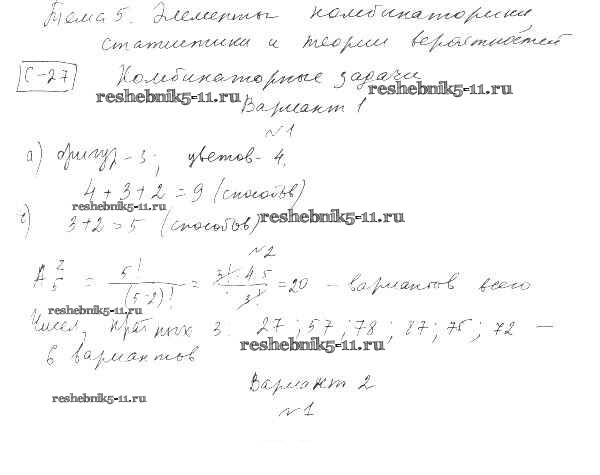 Тема 5. Элементы комбинаторики
статистики и теории вероятностей
С-27 Комбинаторные задачи
reshebnik5-11.ru reshebnik5-11.ru
Вариант 1
№1
а) фигур - 3; цветов - 4.
4 + 3 + 2 = 9 (способов)
reshebnik5-11.ru
б) 3+2=5 (способов) reshebnik5-11.ru
№2
A 2 5 = 5! / (5-2)! = 3! · 4 · 5 / 3! = 20 - вариантов всего
reshebnik5-11.ru
Чисел, кратных 3: 27; 57; 78; 87; 75; 72 —
reshebnik5-11.ru
6 вариантов
Вариант 2
reshebnik5-11.ru
№1